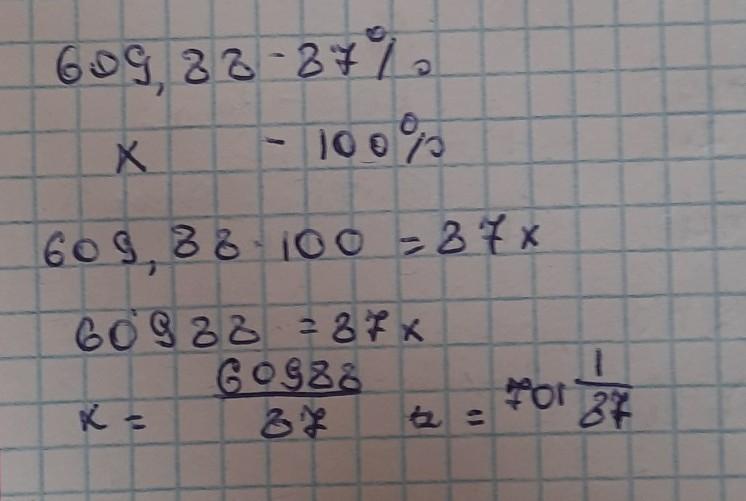 609,88 - 87%
x - 100%
609,88 · 100 = 87x
60988 = 87x
x = 60988/87 = 701 1/87